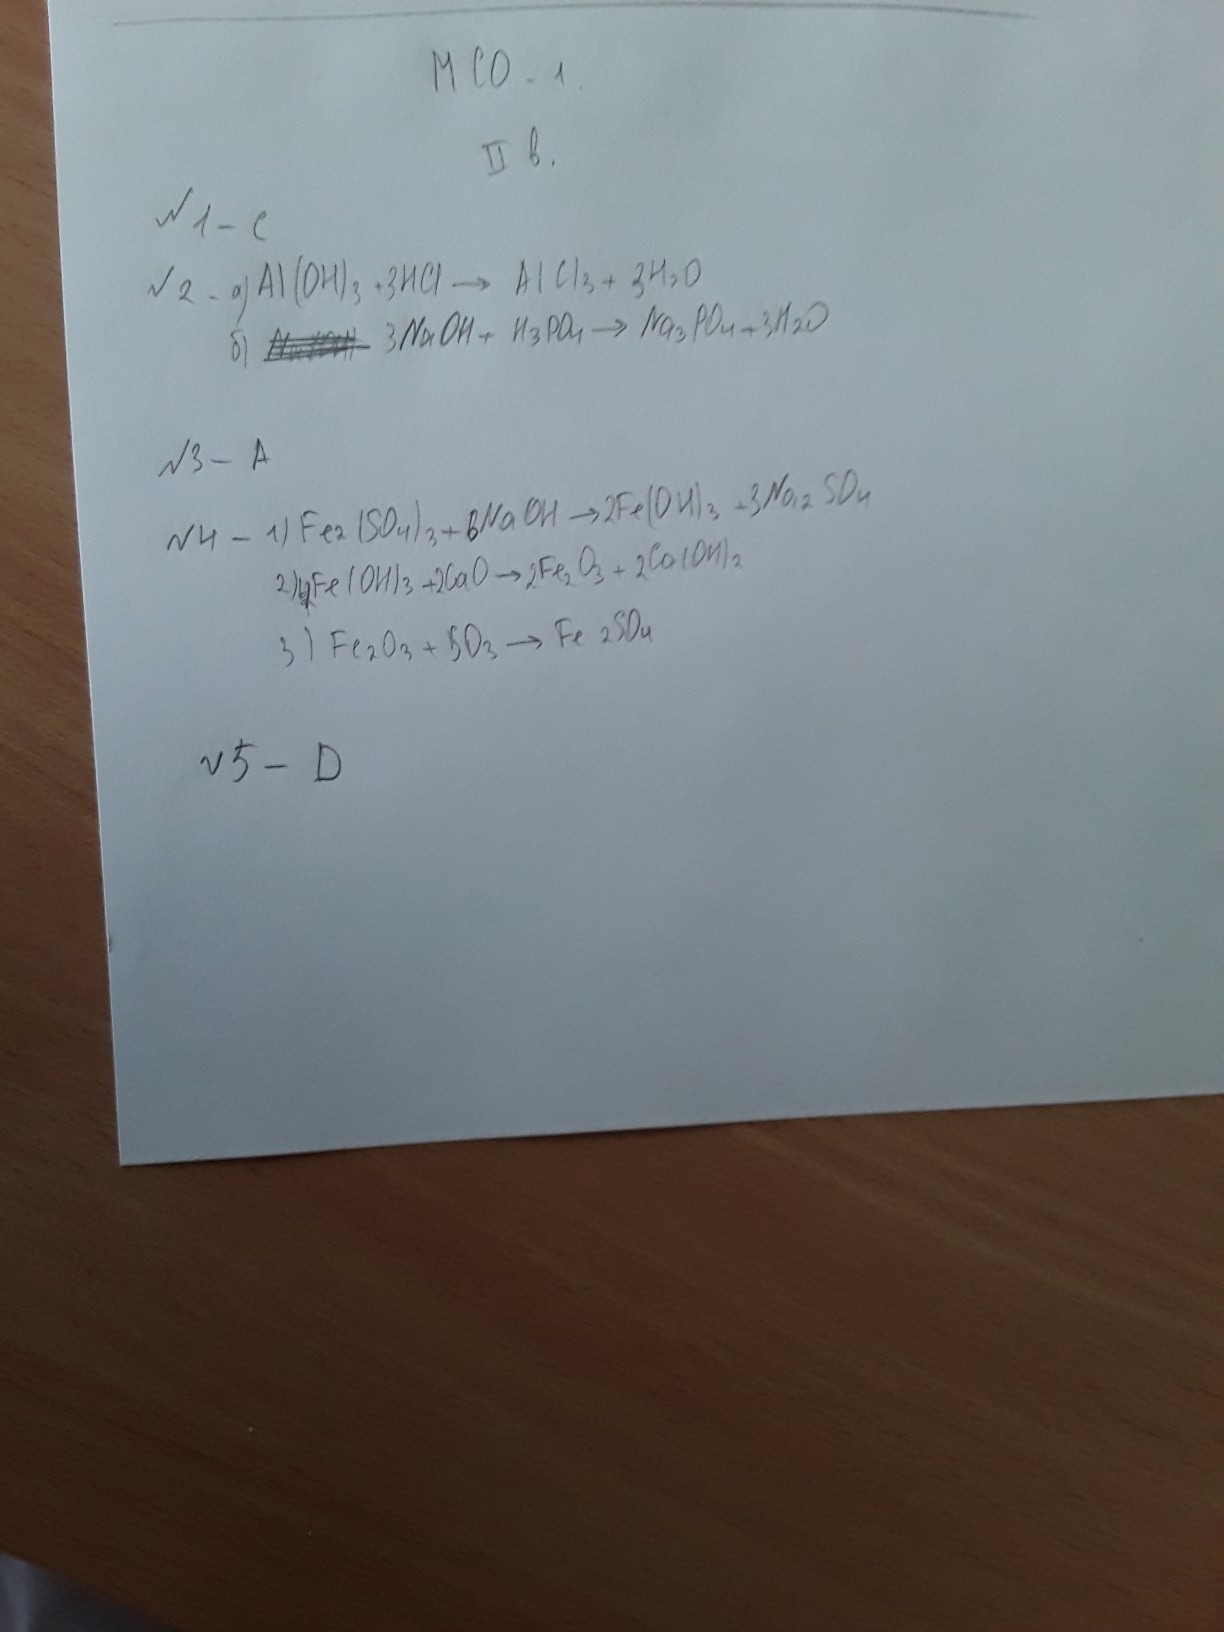 МСО - 1.
II в.
№1 - С
№2 - а) Al(OH)3 + 3HCl → AlCl3 + 3H2O
б) 3NaOH + H3PO4 → Na3PO4 + 3H2O
№3 - А
№4 - 1) Fe2(SO4)3 + 6NaOH → 2Fe(OH)3 + 3Na2SO4
2) 4Fe(OH)3 + 2CaO → 2Fe2O3 + 2Ca(OH)2
3) Fe2O3 + SO3 → Fe2SO4
№5 - D